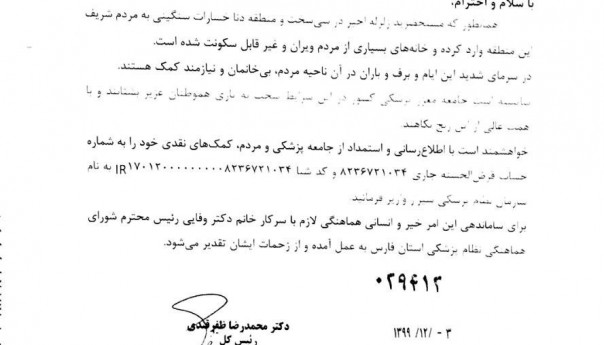 با سلام و احترام؛
همانطور که مستحضرید زلزله اخیر در سی‌سخت و منطقه دنا خسارات سنگینی به مردم شریف
این منطقه وارد کرده و خانه‌های بسیاری از مردم ویران و غیر قابل سکونت شده است.
در سرمای شدید این ایام و برف و باران در آن ناحیه مردم، بی‌خانمان و نیازمند کمک هستند.
شایسته است جامعه معزز پزشکی کشور در این شرایط سخت به یاری هموطنان عزیز بشتابند و با
همت عالی از این رنج بکاهند.
خواهشمند است با اطلاع‌رسانی و استمداد از جامعه پزشکی و مردم، کمک‌های نقدی خود را به شماره
حساب قرض‌الحسنه جاری ۸۲۳۶۷۲۱۰۳۴ و کد شبا IR۱۷۰۱۲۰۰۰۰۰۰۰۰۰۸۲۳۶۷۲۱۰۳۴ به نام
سازمان نظام پزشکی شیراز واریز فرمائید.
برای ساماندهی این امر خیر و انسانی هماهنگی لازم با سرکار خانم دکتر وفایی رئیس محترم شورای
هماهنگی نظام پزشکی استان فارس به عمل آمده و از زحمات ایشان تقدیر می‌شود.
۰۲۹۴۱۲
دکتر محمدرضا ظفرقندی
رئیس کل
۱۳۹۹ /۱۲/ - ۳